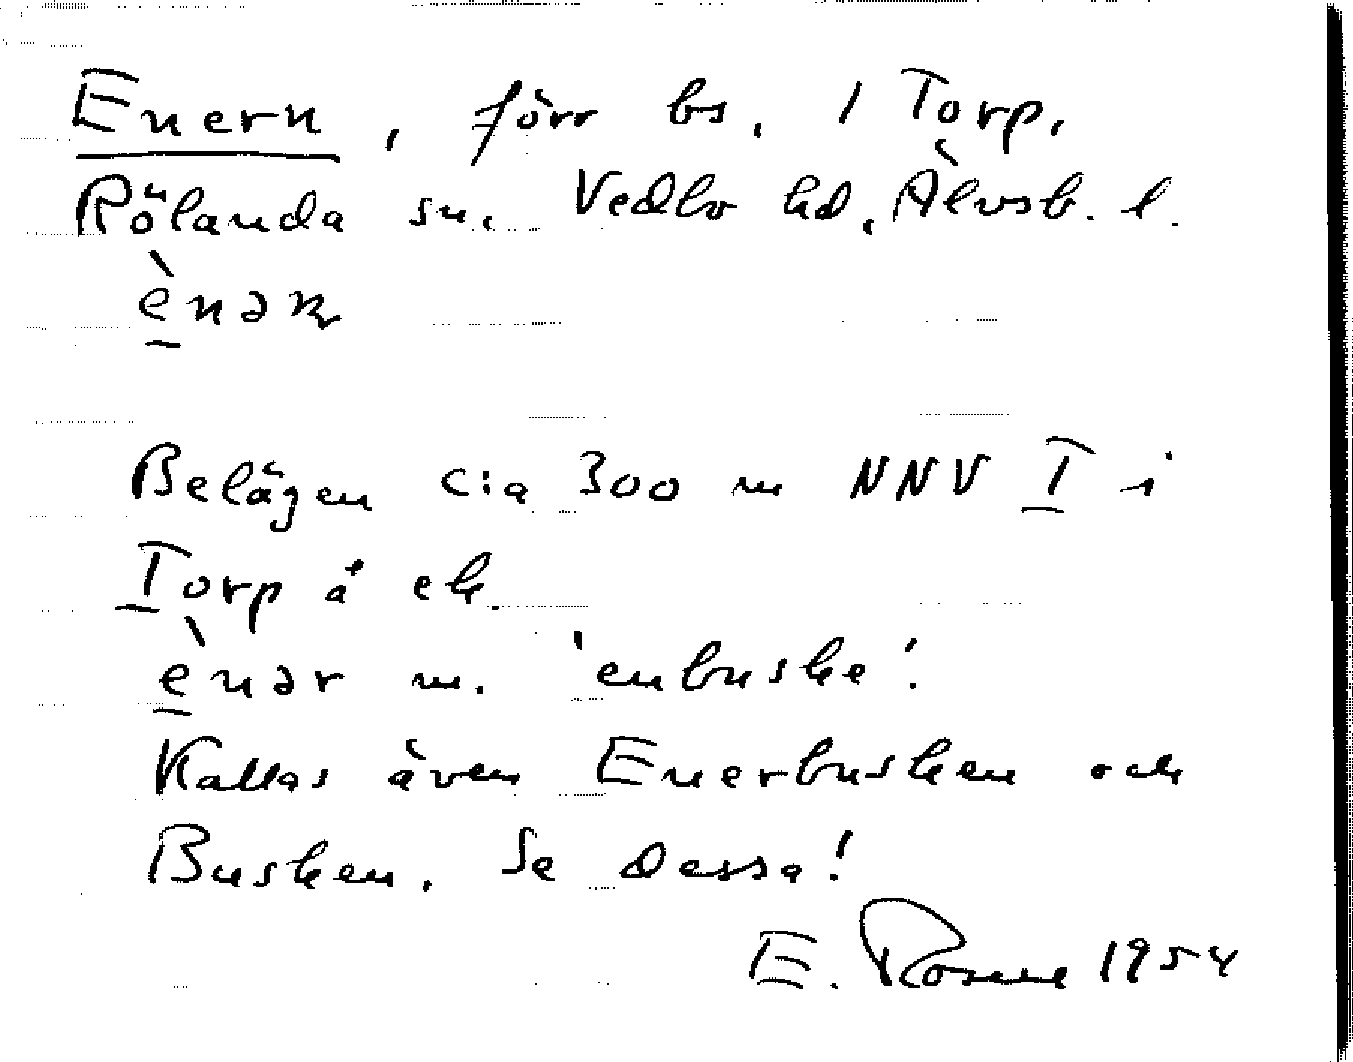 Enern, förr bs. 1 Torp,
Rölanda sn. Vedbo hd, Älvsb. l.
Belägen c:a 300 m NNV I i
Torp å ek.
m. 'enbuske'.
Kallas även Enerbusken och
Busken. Se dessa!
E. Rosell 1954